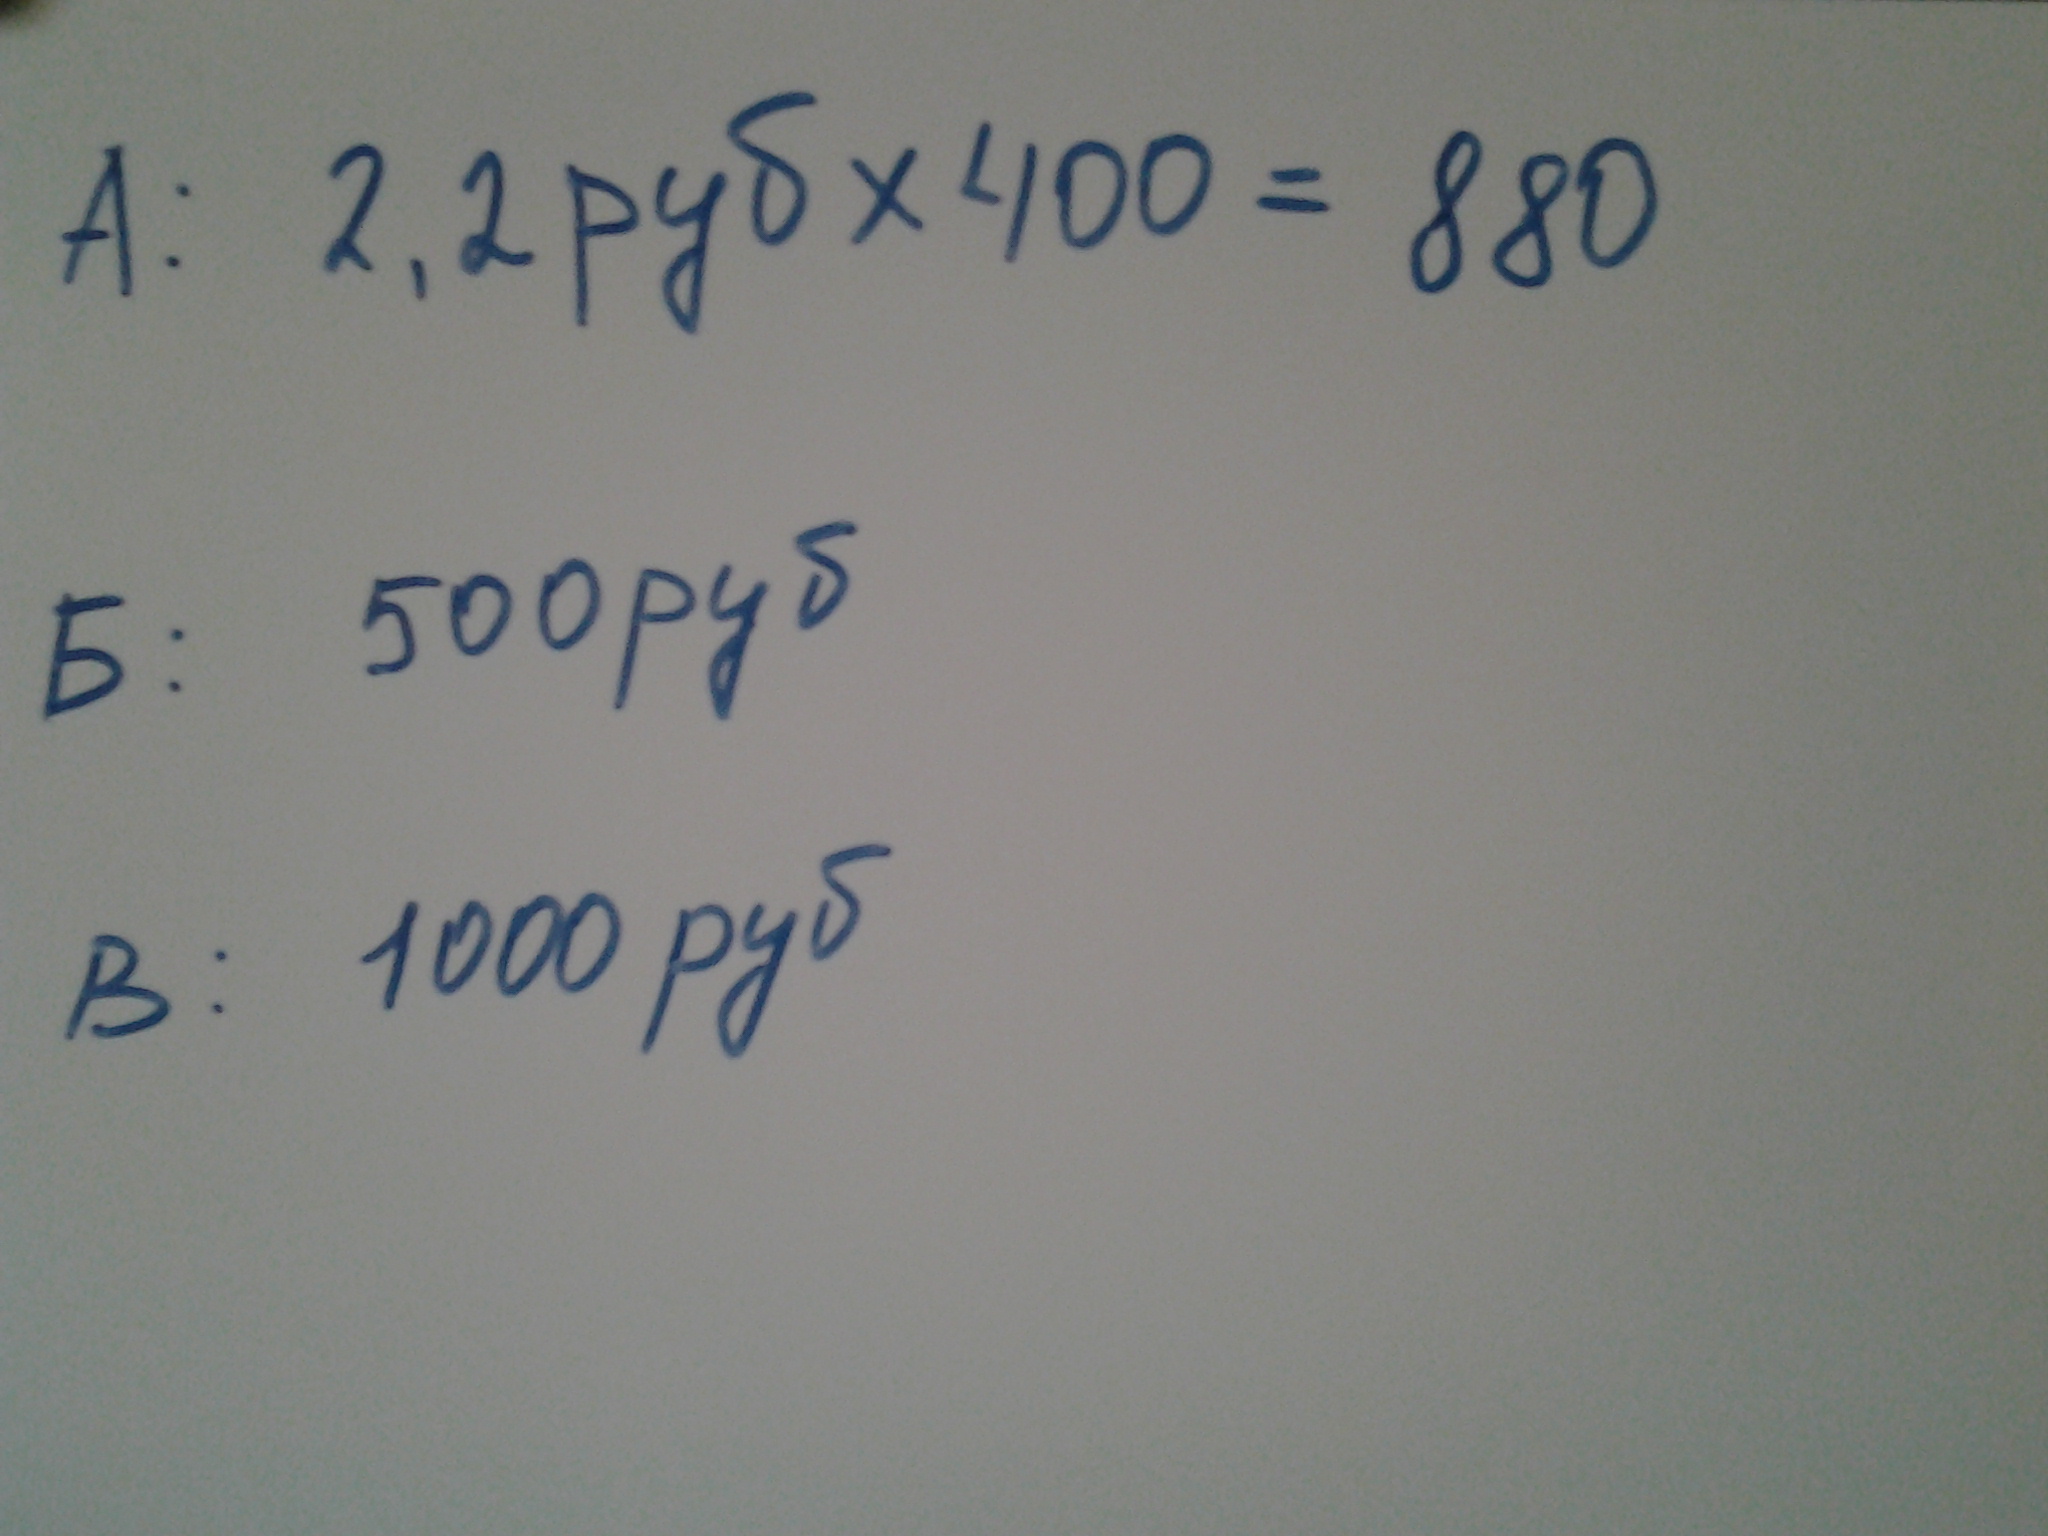 А: 2,2руб х 400 = 880
Б: 500руб
В: 1000 руб